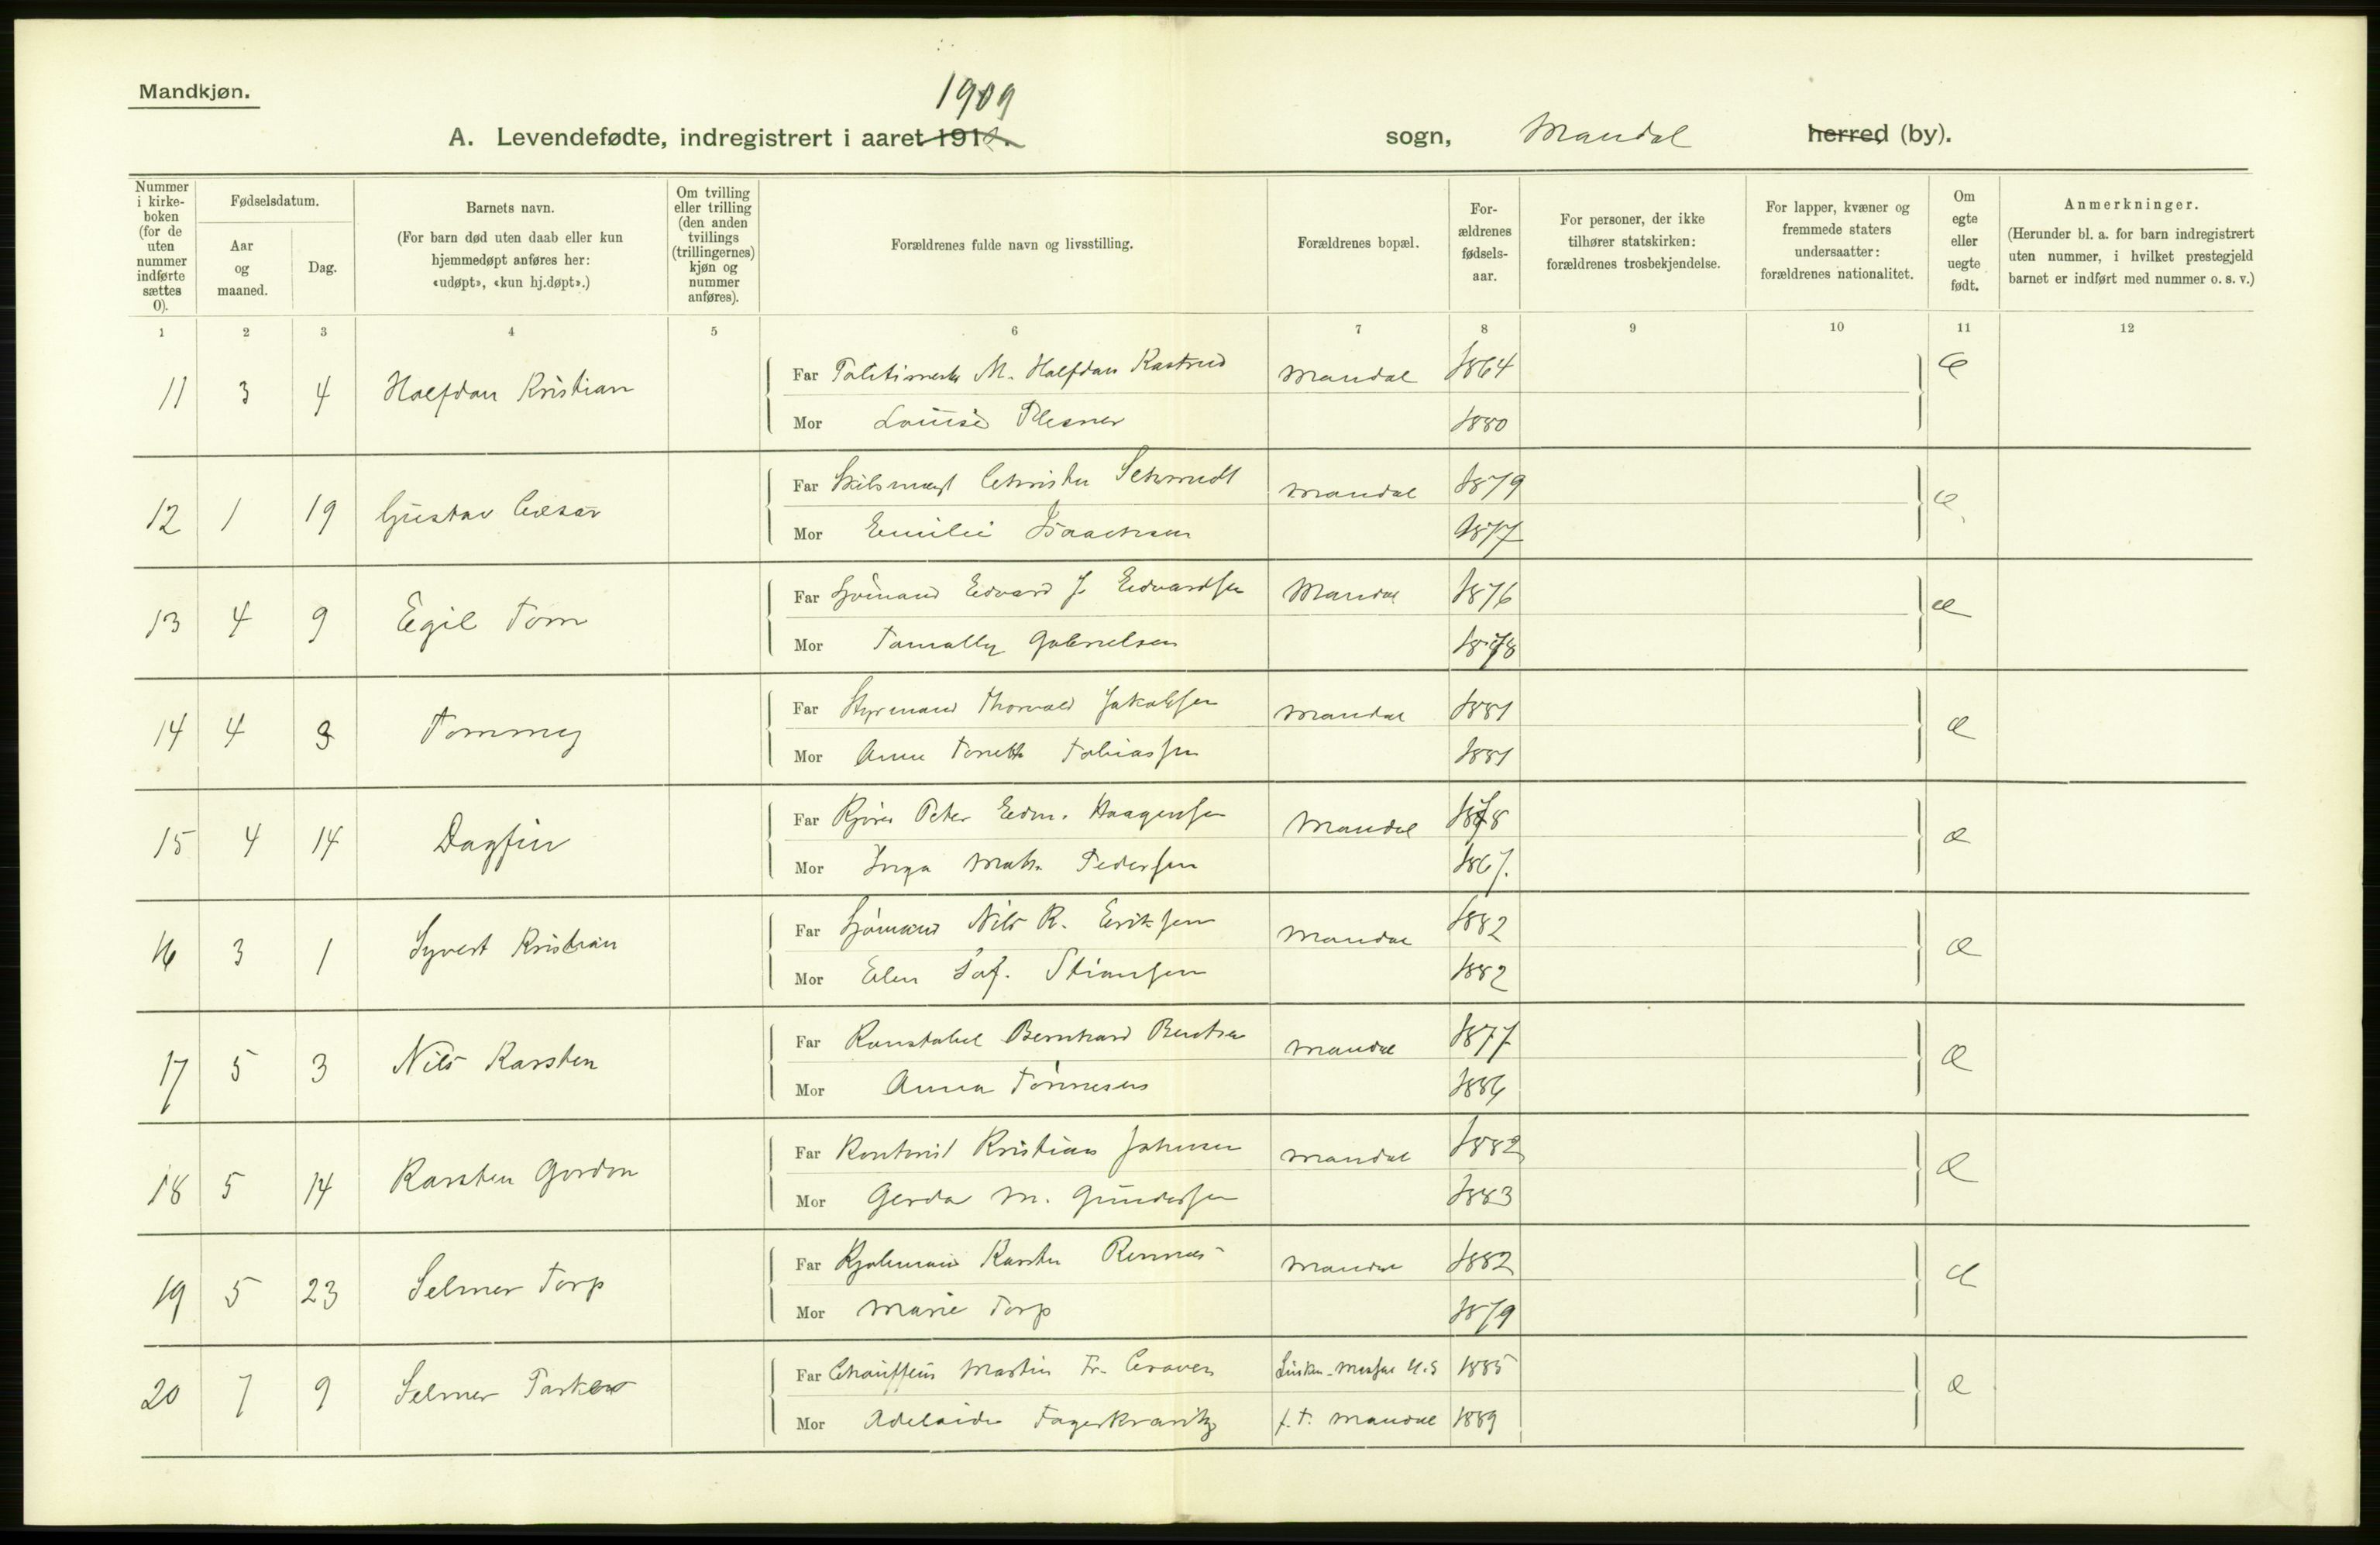 Mandkjøn.
1909
A. Levendefødte, indregistrert i aaret 191
sogn, Mandal herred (by).
Nummer i kirkeboken (for de uten nummer indførte sættes 0).
Fødselsdatum.
Aar og maaned.
Dag.
Barnets navn.
(For barn død uten daab eller kun hjemmedøpt anføres her: «udøpt», «kun hj.døpt».)
Om tvilling eller trilling (den anden tvillings (trillingernes) kjøn og nummer anføres).
Forældrenes fulde navn og livsstilling.
Forældrenes bopæl.
Forældrenes fødselsaar.
For personer, der ikke tilhører statskirken: forældrenes trosbekjendelse.
For lapper, kvæner og fremmede staters undersaatter: forældrenes nationalitet.
Om egte eller uegte født.
Anmerkninger.
(Herunder bl. a. for barn indregistrert uten nummer, i hvilket prestegjeld barnet er indført med nummer o. s. v.)
1 2 3 4 5 6 7 8 9 10 11 12
11 3 4 Halfdan Kristian Far M. Halfdan Kastrud Mandal 1864 e
Mor Louise Plesner 1880
12 1 19 Gustav Cæsar Far Christen Schmidt Mandal 1879 e
Mor Emilie Isaachsen 1877
13 4 9 Egil Tom Far Sjömand Edvard J. Edvardsen Mandal 1876 e
Mor Tomally Gabrielsen 1878
14 4 3 Tommy Far Styrmand Thorvald Jakobsen Mandal 1881 e
Mor Anne Tonette Tobiassen 1881
15 4 14 Dagfin Far Peter Edm. Haagensen Mandal 1878 e
Mor Inga Math. Pedersen 1867.
16 3 1 Syvert Kristian Far Sjömand Nils R. Eriksen Mandal 1882 e
Mor Elen Stiansen 1882
17 5 3 Nils Karsten Far Konstabel Bernhard Bentsen Mandal 1877 e
Mor Anna Tönnesen 1886
18 5 14 Karsten Gordon Far Kontorist Kristian Johnsen Mandal 1882 e
Mor Gerda M. Gundersen 1883
19 5 23 Selmer Torp Far Karsten Mandal 1882 e
Mor Marie Torp 1879
20 7 9 Selmer Parker Far Chauffeur Martin Fr. Craven U.S 1885 e
Mor Adelaide Fagerkrantz f.t. Mandal 1889